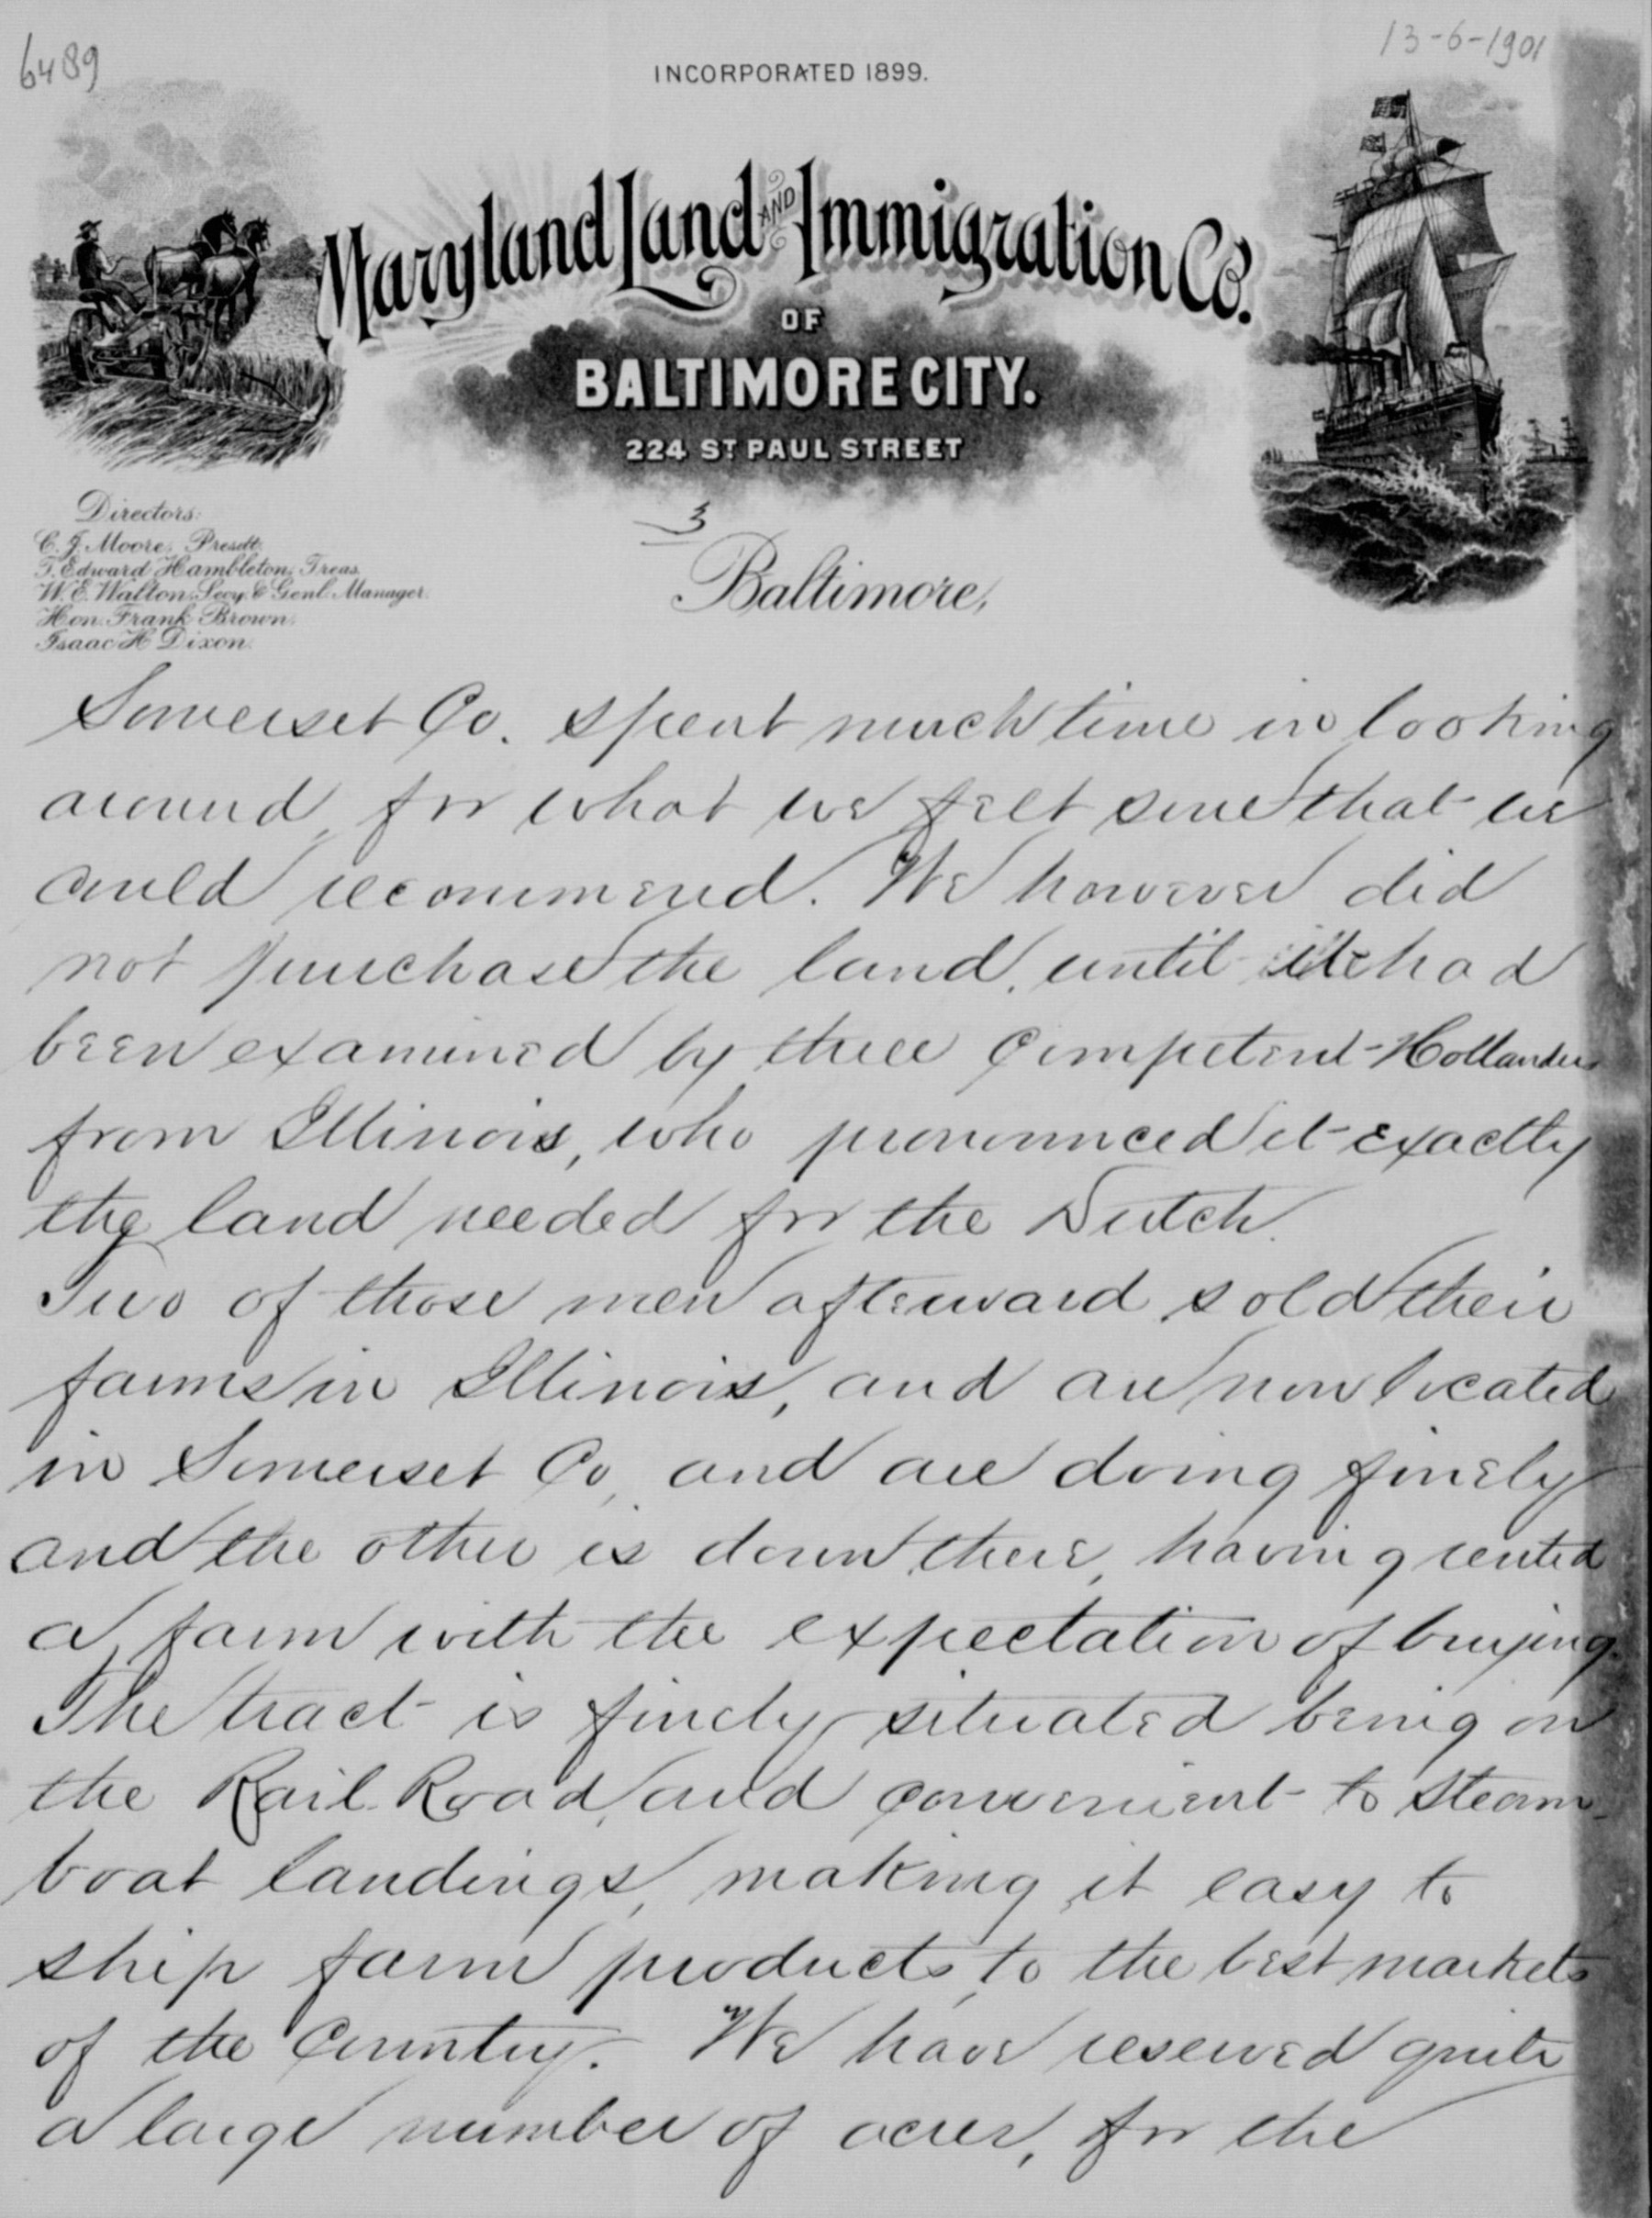 6489
13-6-1901
INCORPORATED 1899.
Maryland Land AND Immigration Co.
OF
BALTIMORE CITY.
224 ST PAUL STREET
Directors:
C. J. Moore, Presdt.
T. Edward Hambleton, Treas.
W. E. Walton, Secy. & Genl. Manager.
Hon. Frank Brown.
Isaac H. Dixon.
3
Baltimore,
Somerset Co. spent much time in looking
around, for what we felt sure that we
could recommend. We however did
not purchase the land, until it had
been examined by three competent Hollanders
from Illinois, who pronounced it exactly
the land needed for the Dutch.
Two of those men afterward sold their
farms in Illinois, and are now located
in Somerset Co, and are doing finely
and the other is down there, having rented
a farm with the expectation of buying.
The tract is finely situated being on
the Rail Road, and convenient to steam-
boat landings, making it easy to
ship farm products, to the best markets
of the Country. We have reserved quite
a large number of acres, for the